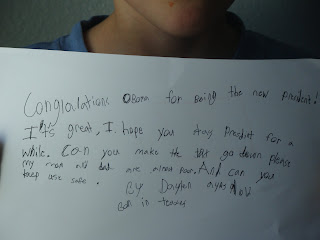 Conglalations Obama for Being the new Presidint!
It's great. I hope you stay Presidet for a
while. Can you make the go down Please
my mom and dad are almost poor. And can you
keep use safe.
By Daylon
Born in texas